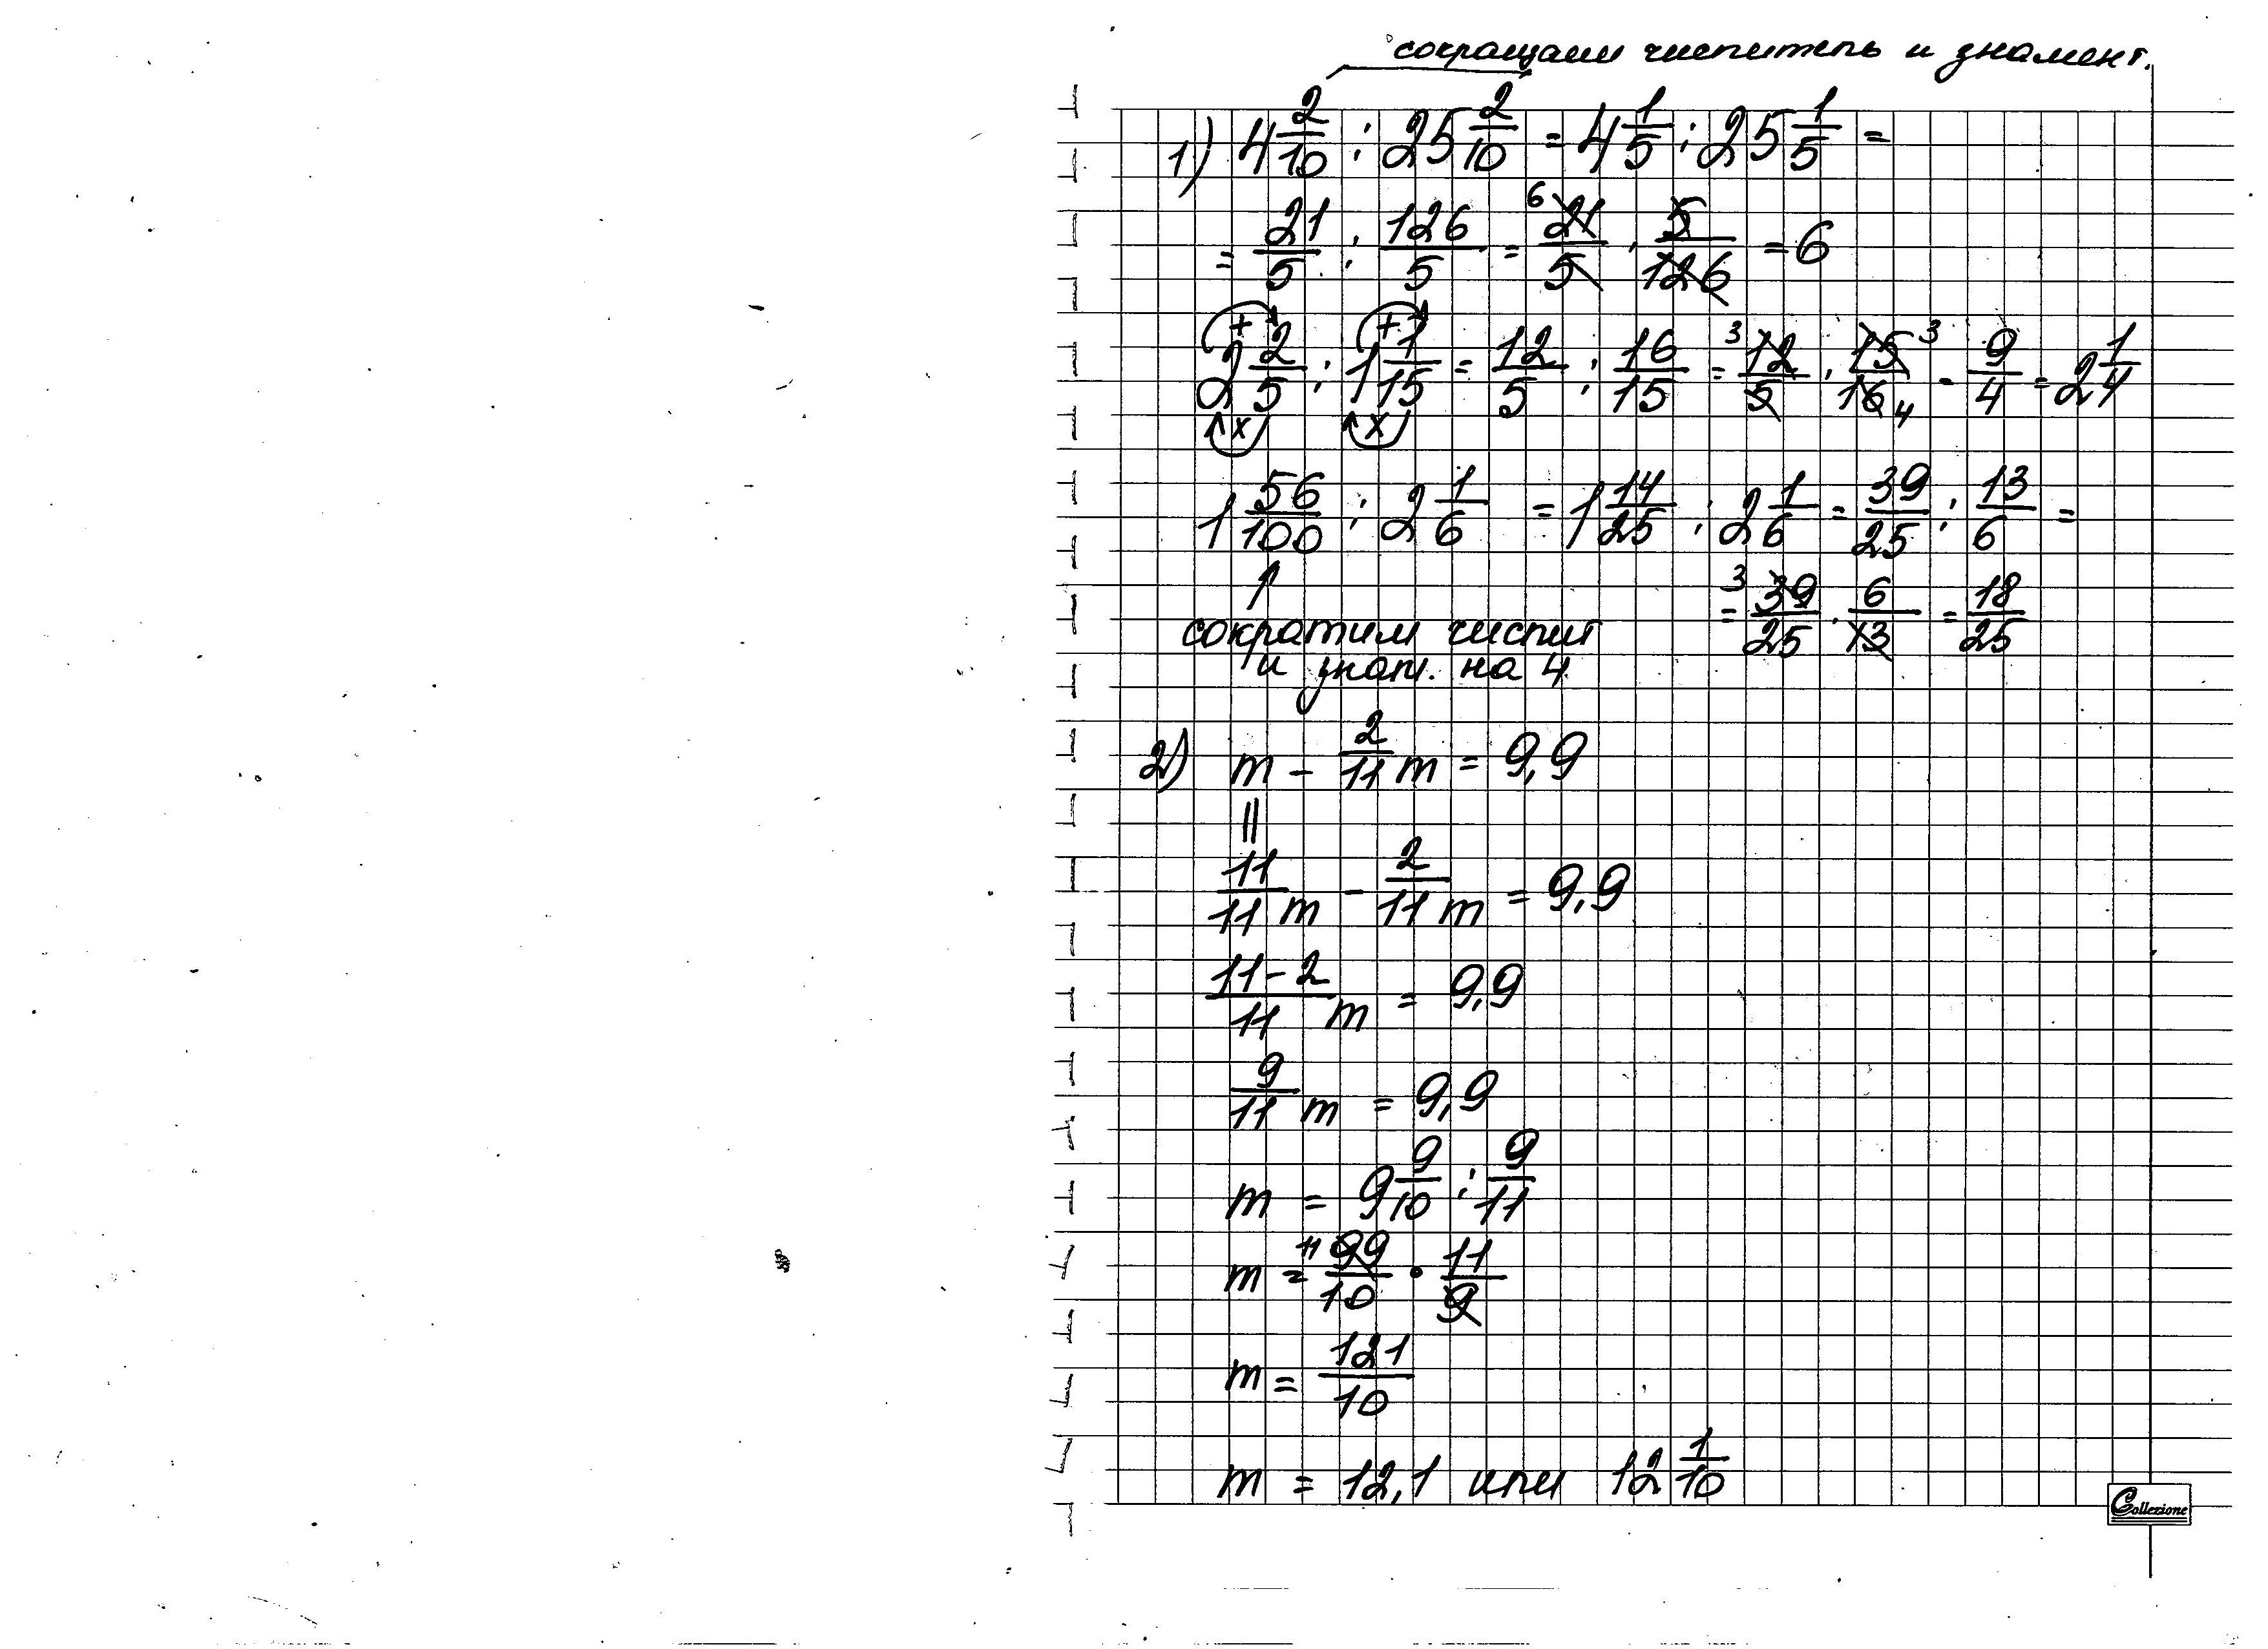 сокращаем числитель и знамент.
1) 4 2/10 : 25 2/10 = 4 1/5 : 25 1/5 =
= 21/5 : 126/5 = 6 21/5 · 5/126 = 6
+ +
2 2/5 : 1 1/15 = 12/5 : 16/15 = 3 12/5 · 15/16 3 4 = 9/4 = 2 1/4
x x
1 56/100 : 2 1/6 = 1 14/25 : 2 1/6 = 39/25 : 13/6 =
= 3 39/25 · 6/13 = 18/25
сократим числит
и знам. на 4
2) m - 2/11 m = 9,9
||
11/11 m - 2/11 m = 9,9
11-2/11 m = 9,9
9/11 m = 9,9
m = 9 9/10 : 9/11
m = 11 99/10 · 11/9
m = 121/10
m = 12,1 или 12 1/10
Collezione